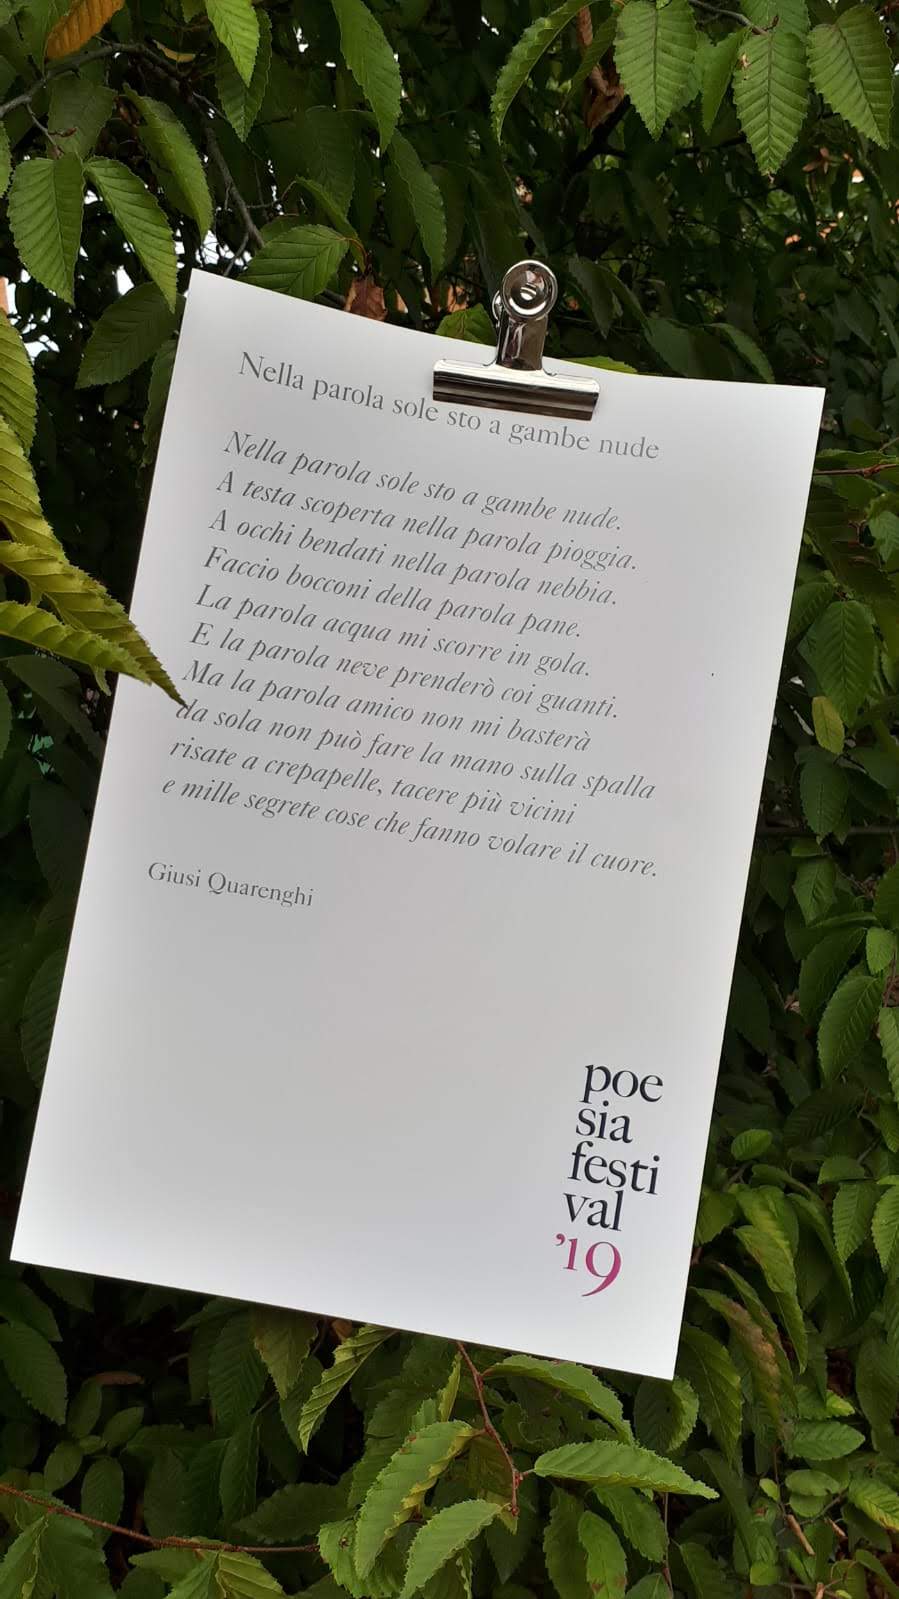 Nella parola sole sto a gambe nude
Nella parola sole sto a gambe nude.
A testa scoperta nella parola pioggia.
A occhi bendati nella parola nebbia.
Faccio bocconi della parola pane.
La parola acqua mi scorre in gola.
E la parola neve prenderò coi guanti.
Ma la parola amico non mi basterà
da sola non può fare la mano sulla spalla
risate a crepapelle, tacere più vicini
e mille segrete cose che fanno volare il cuore.
Giusi Quarenghi
poe
sia
festi
val
'19